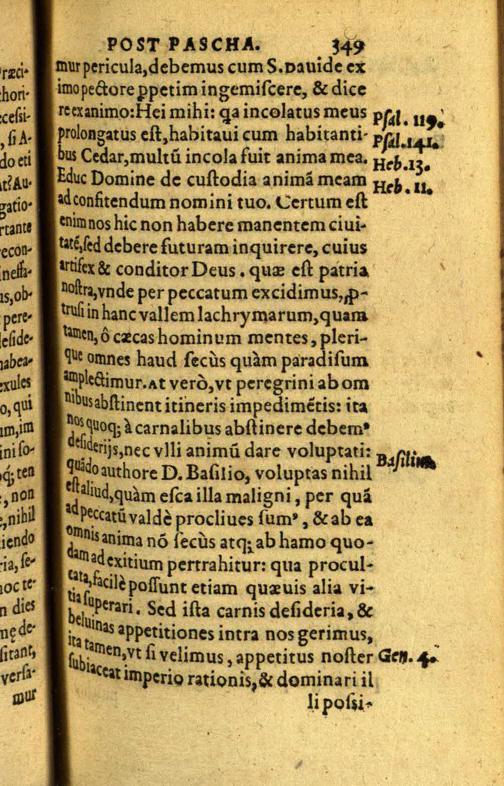 POST PASCHA. 349
mur pericula, debemus cum S. Dauide ex
imo pectore ꝑpetim ingemiscere, & dice
re ex animo: Hei mihi: qa incolatus meus
prolongatus est, habitaui cum habitanti-
bus Cedar, multũ incola fuit anima mea.
Educ Domine de custodia animã meam
ad confitendum nomini tuo. Certum est
enim nos hic non habere manentem ciui-
tatẽ, sed debere futuram inquirere, cuius
artifex & conditor Deus. quæ est patria
nostra, vnde per peccatum excidimus, ꝓ-
trusi in hanc vallem lachrymarum, quam
tamen, ô cæcas hominum mentes, pleri-
que omnes haud secùs quàm paradisum
amplectimur. At verò, vt peregrini ab om
nibus abstinent itineris impedimẽtis: ita
nos quoq; à carnalibus abstinere debemꝰ
desiderijs, nec vlli animũ dare voluptati:
quãdo authore D. Basilio, voluptas nihil
est aliud, quàm esca illa maligni, per quã
ad peccatũ valdè procliues sumꝰ, & ab ea
omnis anima nõ secùs atq; ab hamo quo-
dam ad exitium pertrahitur: qua procul-
cata, facilè possunt etiam quæuis alia vi-
tia superari. Sed ista carnis desideria, &
beluinas appetitiones intra nos gerimus,
ita tamen, vt si velimus, appetitus noster
subiaceat imperio rationis, & dominari il
li possi-
Psal. 119.
Psal. 141.
Heb. 13.
Heb. 11.
Basilius
Gen. 4.